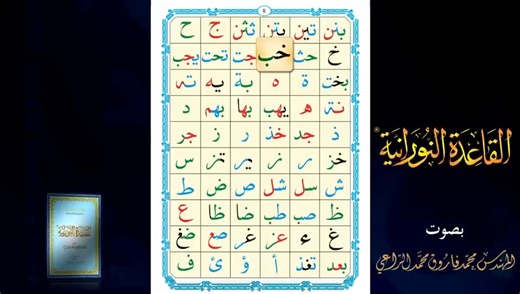 ٥
بتن تين يتن ج ح
خ حث خب جت تحت يجب
بخت ة ه بة يه ته
نة ه يهب بها بهم د
ذ جد خذ ر ز جر
خز ر ز ير تز س
ش سل شل ص ض ط
ظ صب طب ضا ظا ع
غ ء عز غر صع ضغ
بعد تغذ أ ؤ ئ ف
القاعدة النورانية
بصوت
المهندس محمد فاروق محمد الراعي